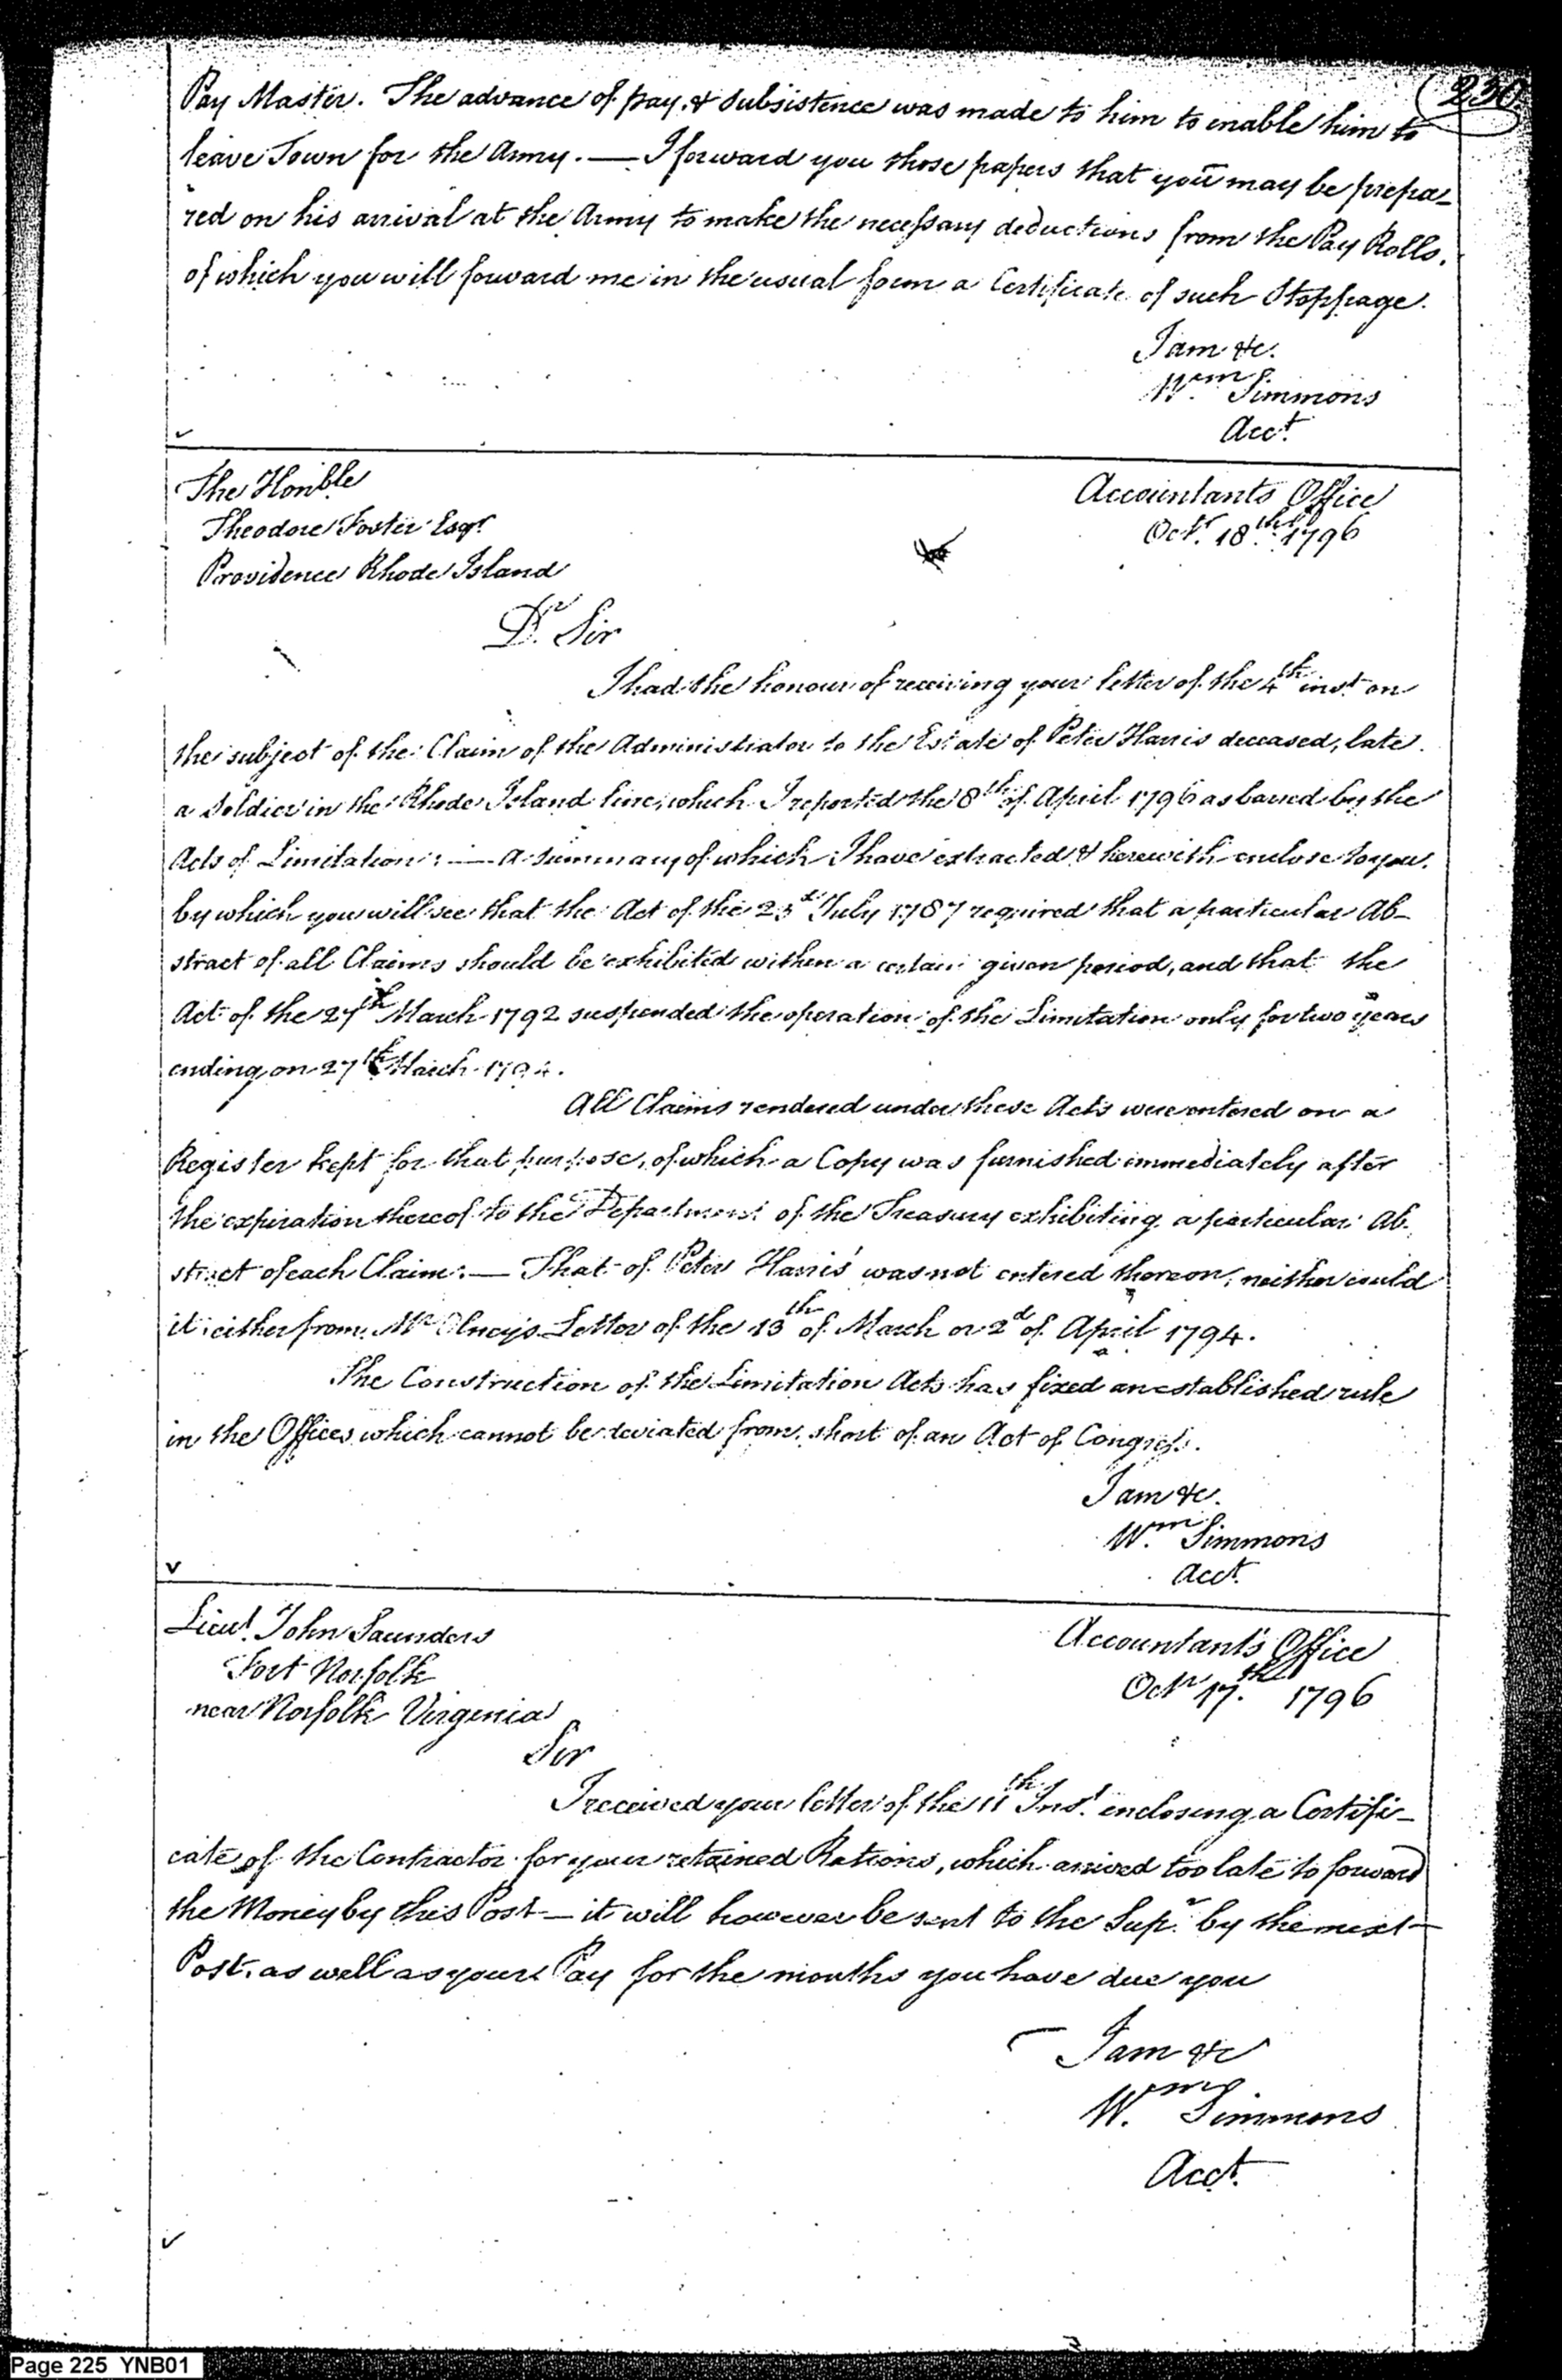 230
Pay Master. The advance of pay, & subsistence was made to him to enable him to
leave Town for the Army. — I forward you those papers that you may be prepa-
red on his arrival at the Army to make the necessary deductions from the Pay Rolls.
of which you will forward me in the usual form a Certificate of such Stoppage.
I am &c.
Wm Simmons
Acct.
The Honble
Theodore Foster Esqr.
Providence Rhode Island
Accountants Office
Octr. 18th. 1796
Dr. Sir
I had the honour of receiving your letter of the 4th inst on
the subject of the Claim of the Administrator to the Estate of Peter Harris deceased, late
a Soldier in the Rhode Island line, which I reported the 8th of April 1796 as barred by the
Acts of Limitation: — A summary of which I have extracted & herewith enclose to you.
by which you will see that the Act of the 23d July 1787 required that a particular Ab-
stract of all Claims should be exhibited within a certain given period, and that the
Act of the 27th March 1792 suspended the operation of the Limitation only for two years
ending on 27th March 1794.
All Claims rendered under these Acts were entered on a
Register kept for that purpose, of which a Copy was furnished immediately after
the expiration thereof to the Department of the Treasury exhibiting a particular Ab-
stract of each Claim: — That of Peter Harris' was not entered thereon, neither could
it either from Mr Olney's Letter of the 13th of March or 2d of April 1794.
The Construction of the Limitation Acts has fixed an established rule
in the Offices which cannot be deviated from, short of an Act of Congress.
I am &c.
Wm. Simmons
Acct.
Lieut. John Saunders
Fort Norfolk
near Norfolk Virginia
Accountant's Office
Octr 17th. 1796
Sir
I received your letter of the 11th Inst. enclosing a Certifi-
cate of the Contractor for your retained Rations, which arrived too late to forward
the Money by this Post — it will however be sent to the Supr. by the next
Post, as well as your Pay for the months you have due you
I am &c
Wm. Simmons
Acct.
Page 225 YNB01